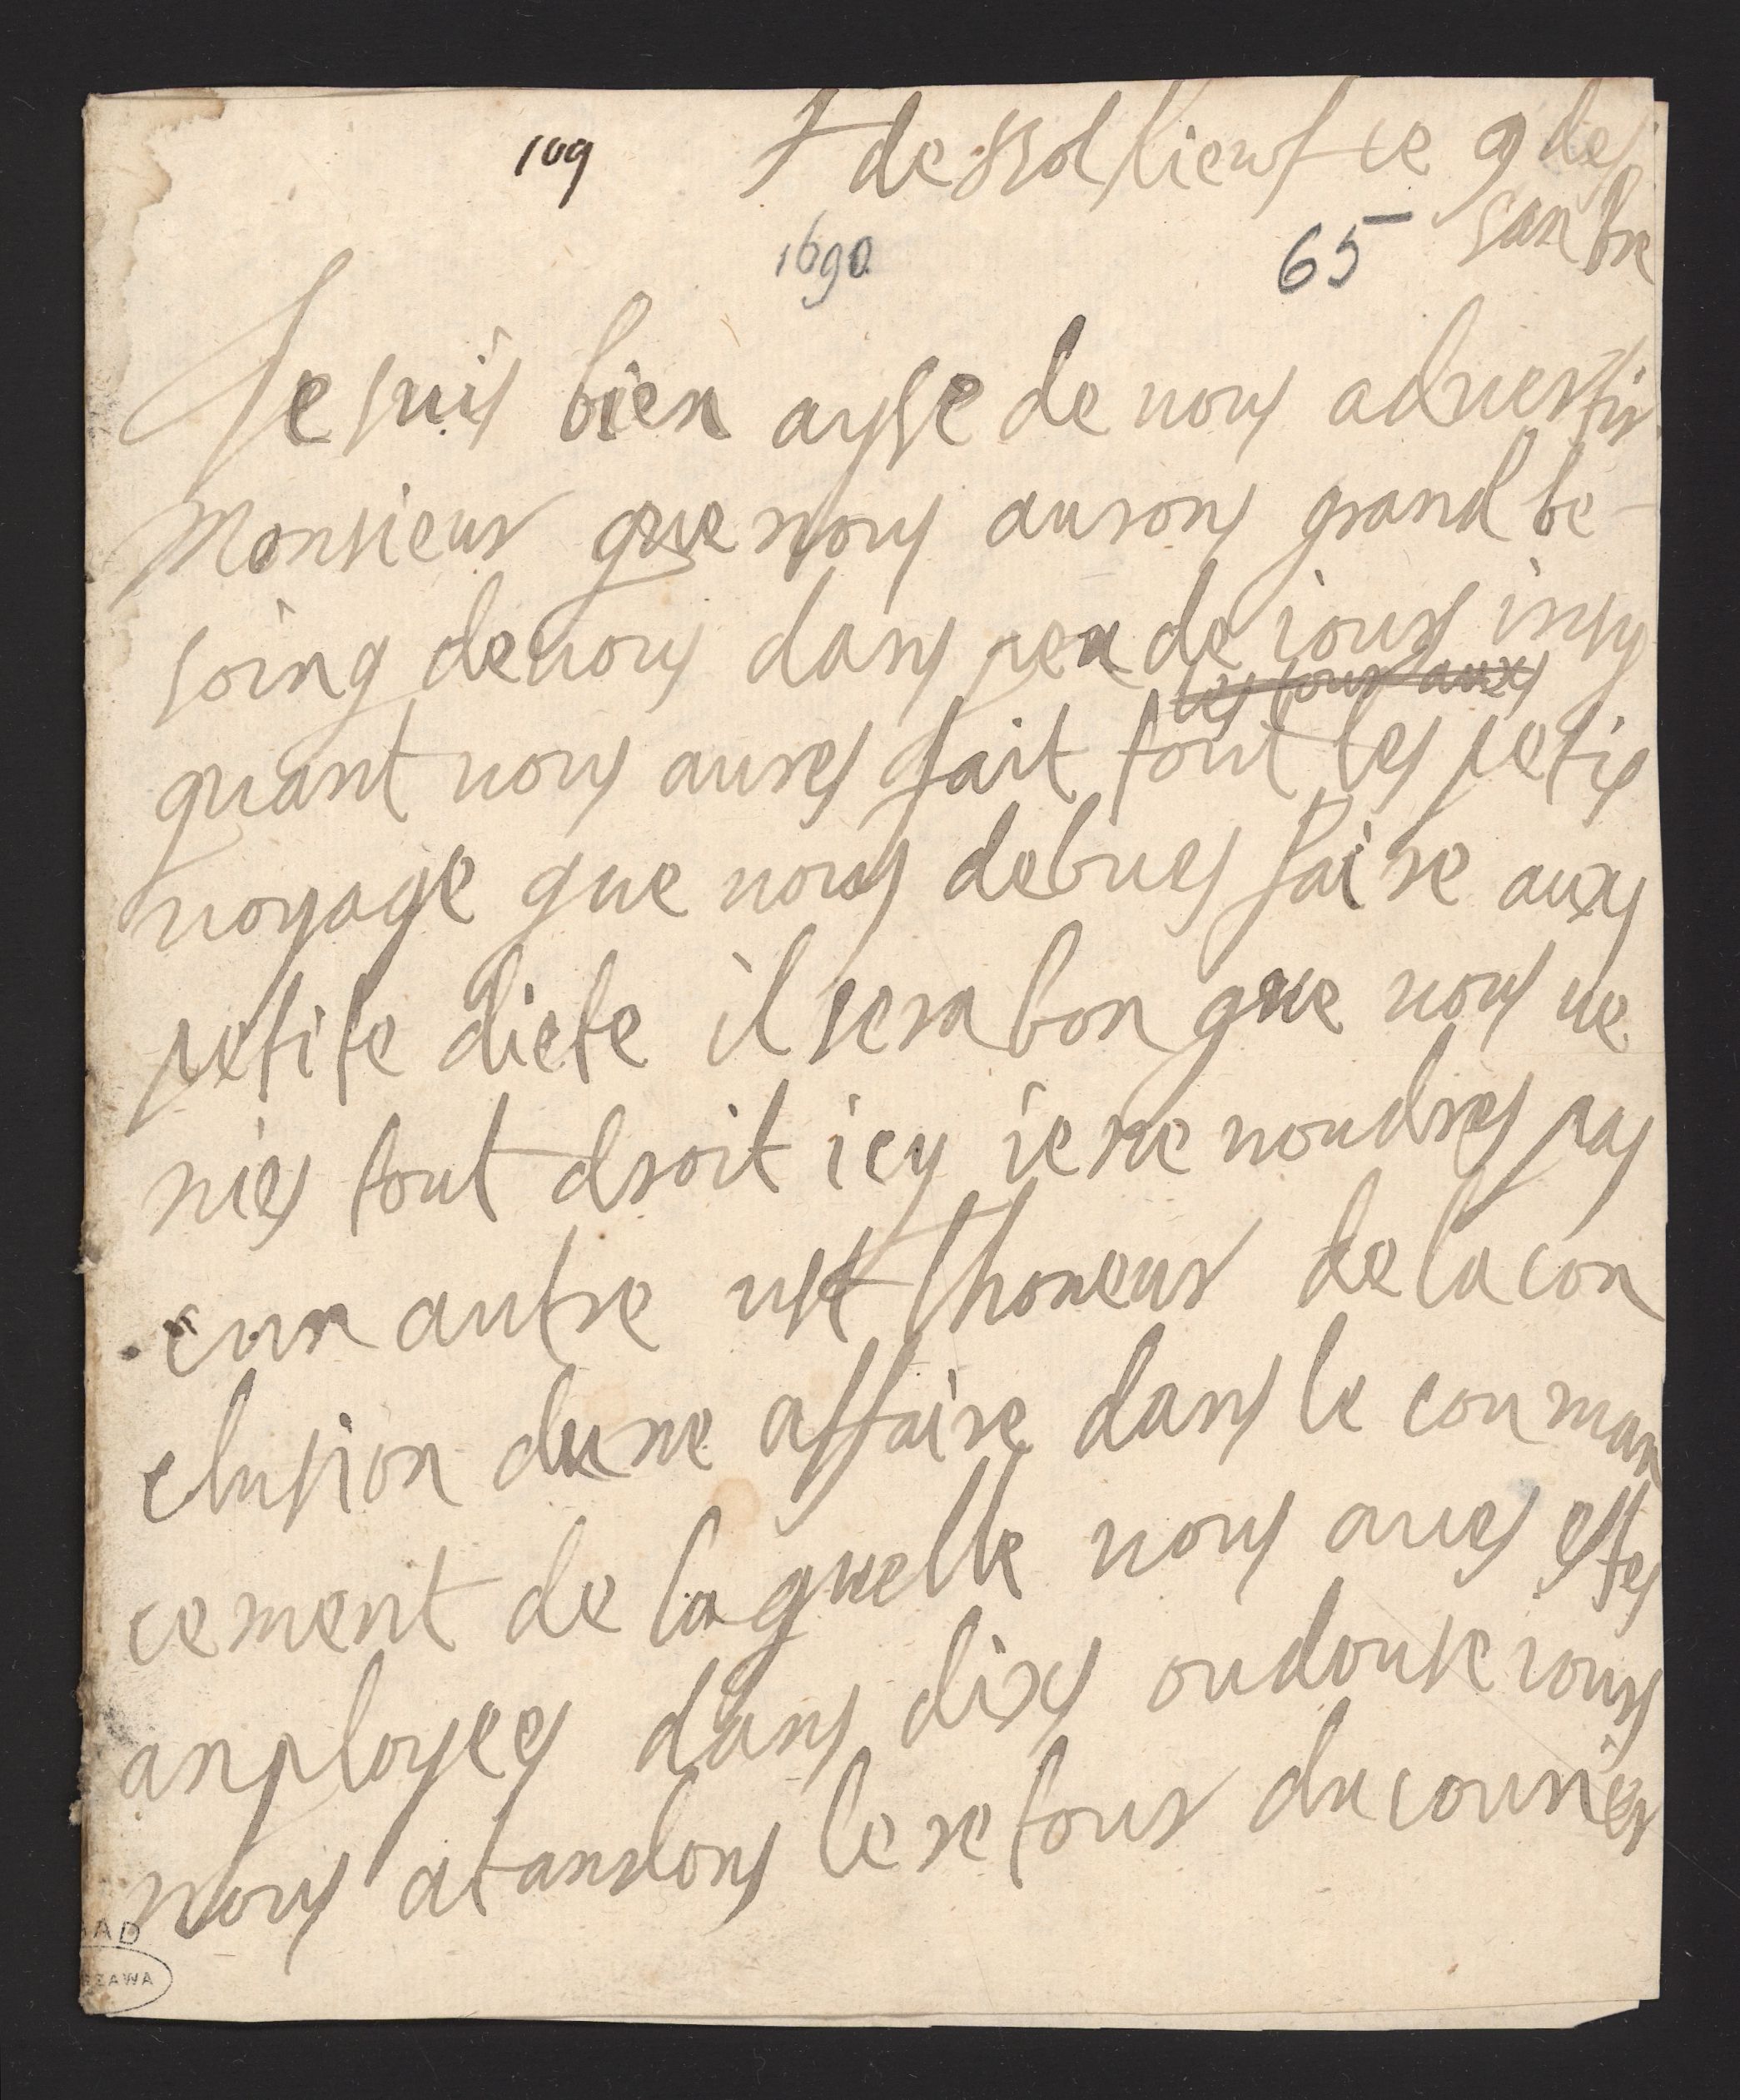 109
de ssol kiewf ce 9 des
sanbre
1690
65
Je suis bien aysse de vous advertir
Monsieur que nous aurons grand be-
soing de vous dans peu de iours insy
les tour aux
quant vous aures fait tout les petis
voyage que vous debves faire aux
petite diete il sera bon que vous ve
nies tout droit icy ie ne voudres pas
cun autre ust lhoneur de la con
clusion dune affaire dans le couman
cement de laquelle vous aves estes
anployees dans dixs ou douse iours
nous atandons le retour du courier
AD
SZAWA